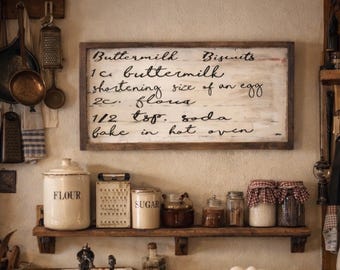 Buttermilk Biscuits
1 c. buttermilk
shortening size of an egg
2c. floura
1/2 tsp. soda
bake in hot oven
FLOUR
SUGAR